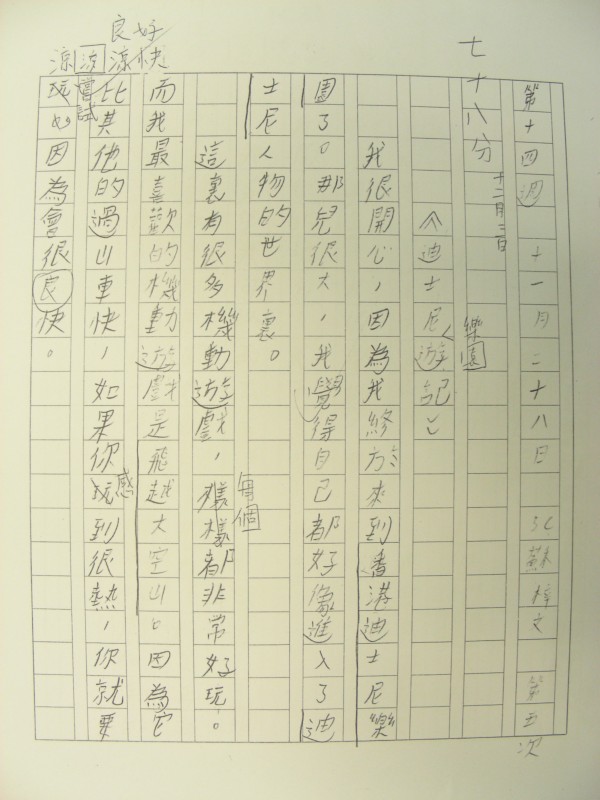 七十八分
十二月三日
第十四週 十一月二十八日 蘇梓文 第五次
迪士尼樂園遊記
我很開心,因為我終於來到香港迪士尼樂
園了。那兒很大,我覺得自己都好像進入了迪
士尼人物的世界裏。
這裏有很多機動遊戲,樣樣都非常好玩。
每個
而我最喜歡的機動遊戲是飛越太空山。因為它
比其他的過山車快,如果你玩到很熱,你就要
感
嘗試
玩 因為會很良快。
良好
涼涼涼快